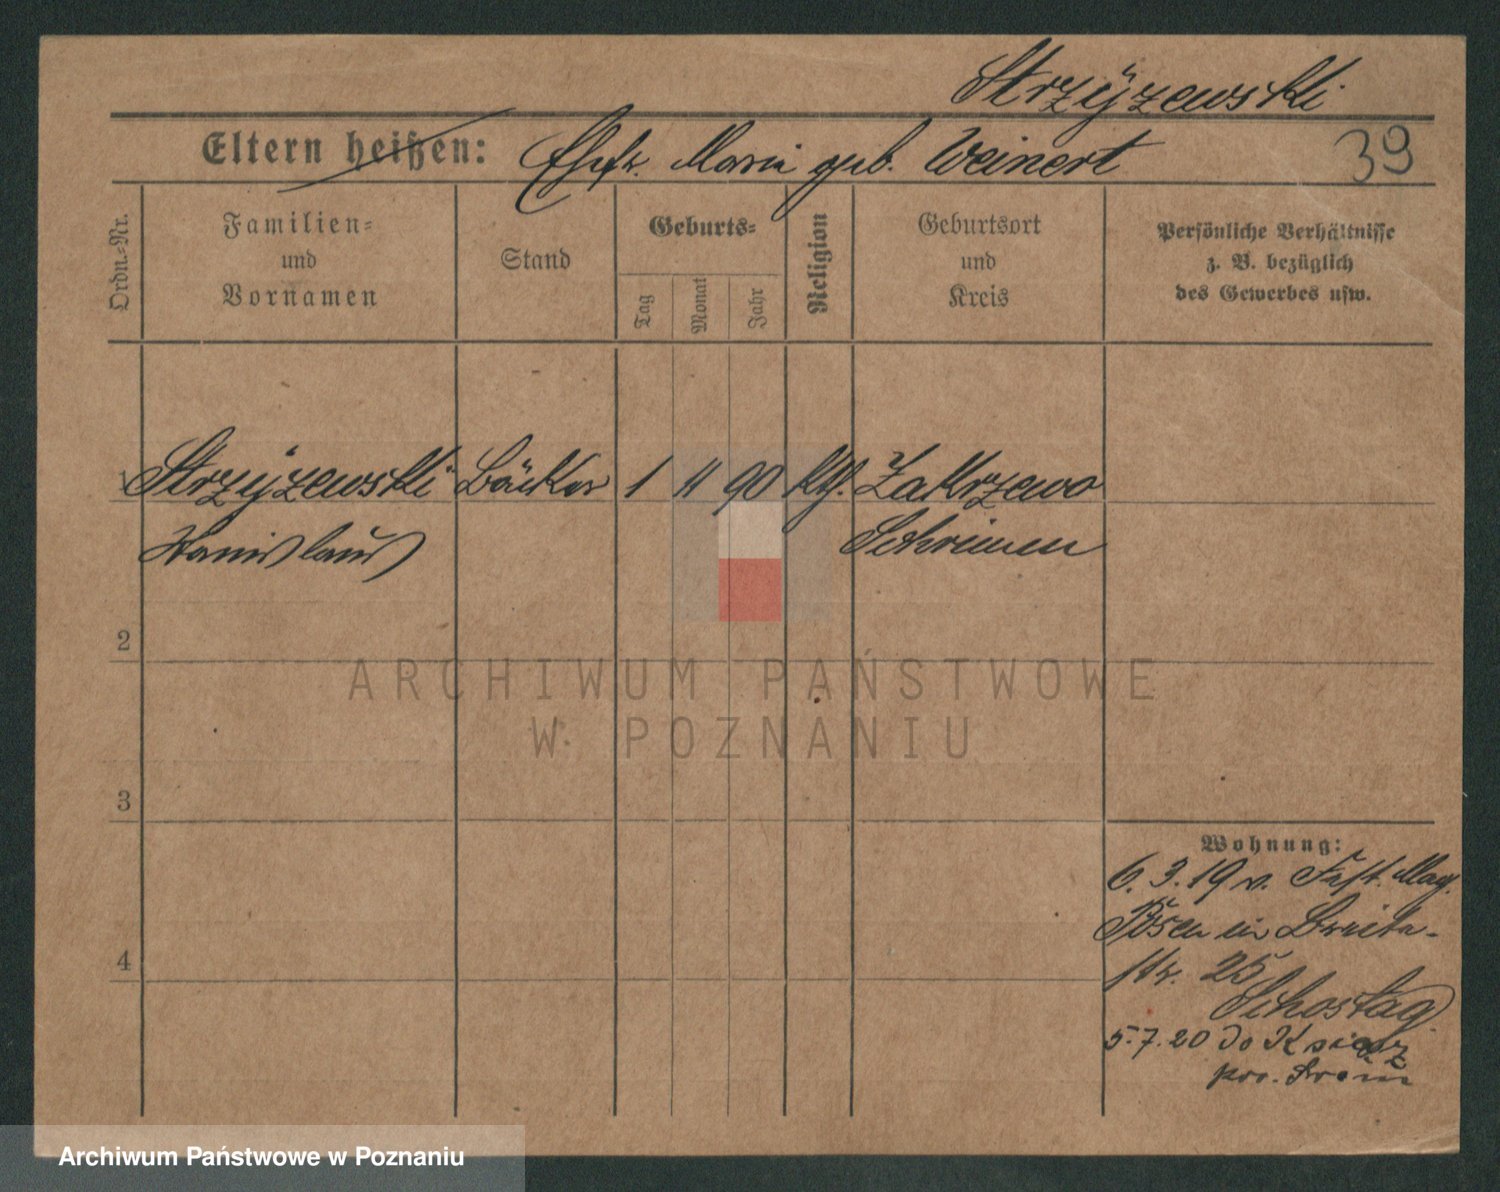 Strzÿzewski
Eltern heißen: Ehefr. Maria geb. Weinert
39
Ordn.-Nr.
Familien- und Vornamen
Stand
Geburts-
Tag
Monat
Jahr
Religion
Geburtsort und Kreis
Persönliche Verhältnisse
z. B. bezüglich
des Gewerbes usw.
1 Strzÿzewski Bäcker 1 11 90 kth. Zakrzewo
Stanislaus Schrimm
2
ARCHIWUM PAŃSTWOWE
W POZNANIU
3
Wohnung:
6.3.19 v. Fest. Mag.
Posen in Breite-
str. 25
Schostag
4
5.7.20 do Książ
pow. Śrem
Archiwum Państwowe w Poznaniu